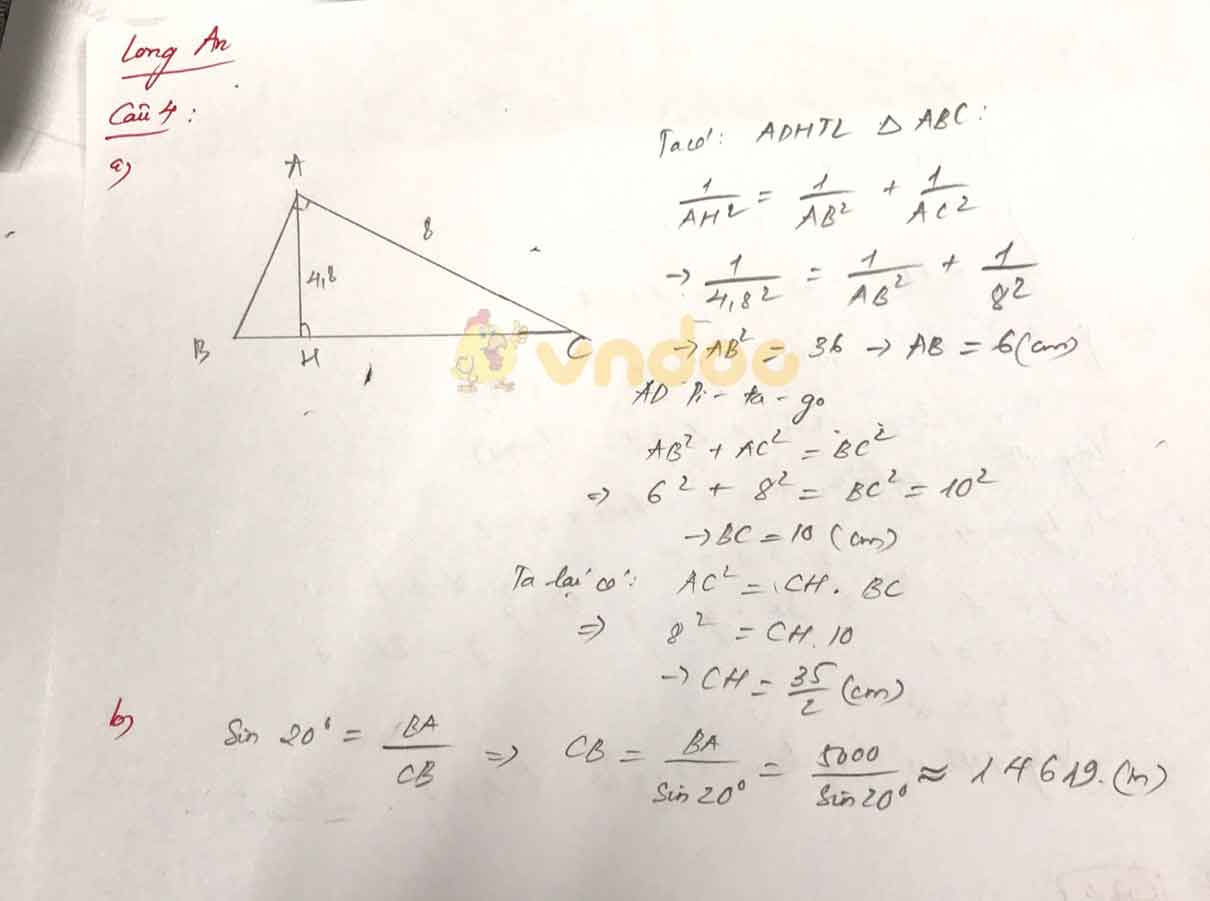 Long An
Câu 4:
a)
A
8
4,8
B
H
C
Ta có: ADHTL Δ ABC:
1/AH² = 1/AB² + 1/AC²
→ 1/4,8² = 1/AB² + 1/8²
→ AB² = 36 → AB = 6 (cm)
vndoc
AD Pi-ta-go
AB² + AC² = BC²
=> 6² + 8² = BC² = 10²
→ BC = 10 (cm)
Ta lại có: AC² = CH. BC
=> 8² = CH.10
→ CH = 35/2 (cm)
b)
Sin 20° = BA/CB => CB = BA/Sin 20° = 5000/Sin 20° ≈ 14619.(m)